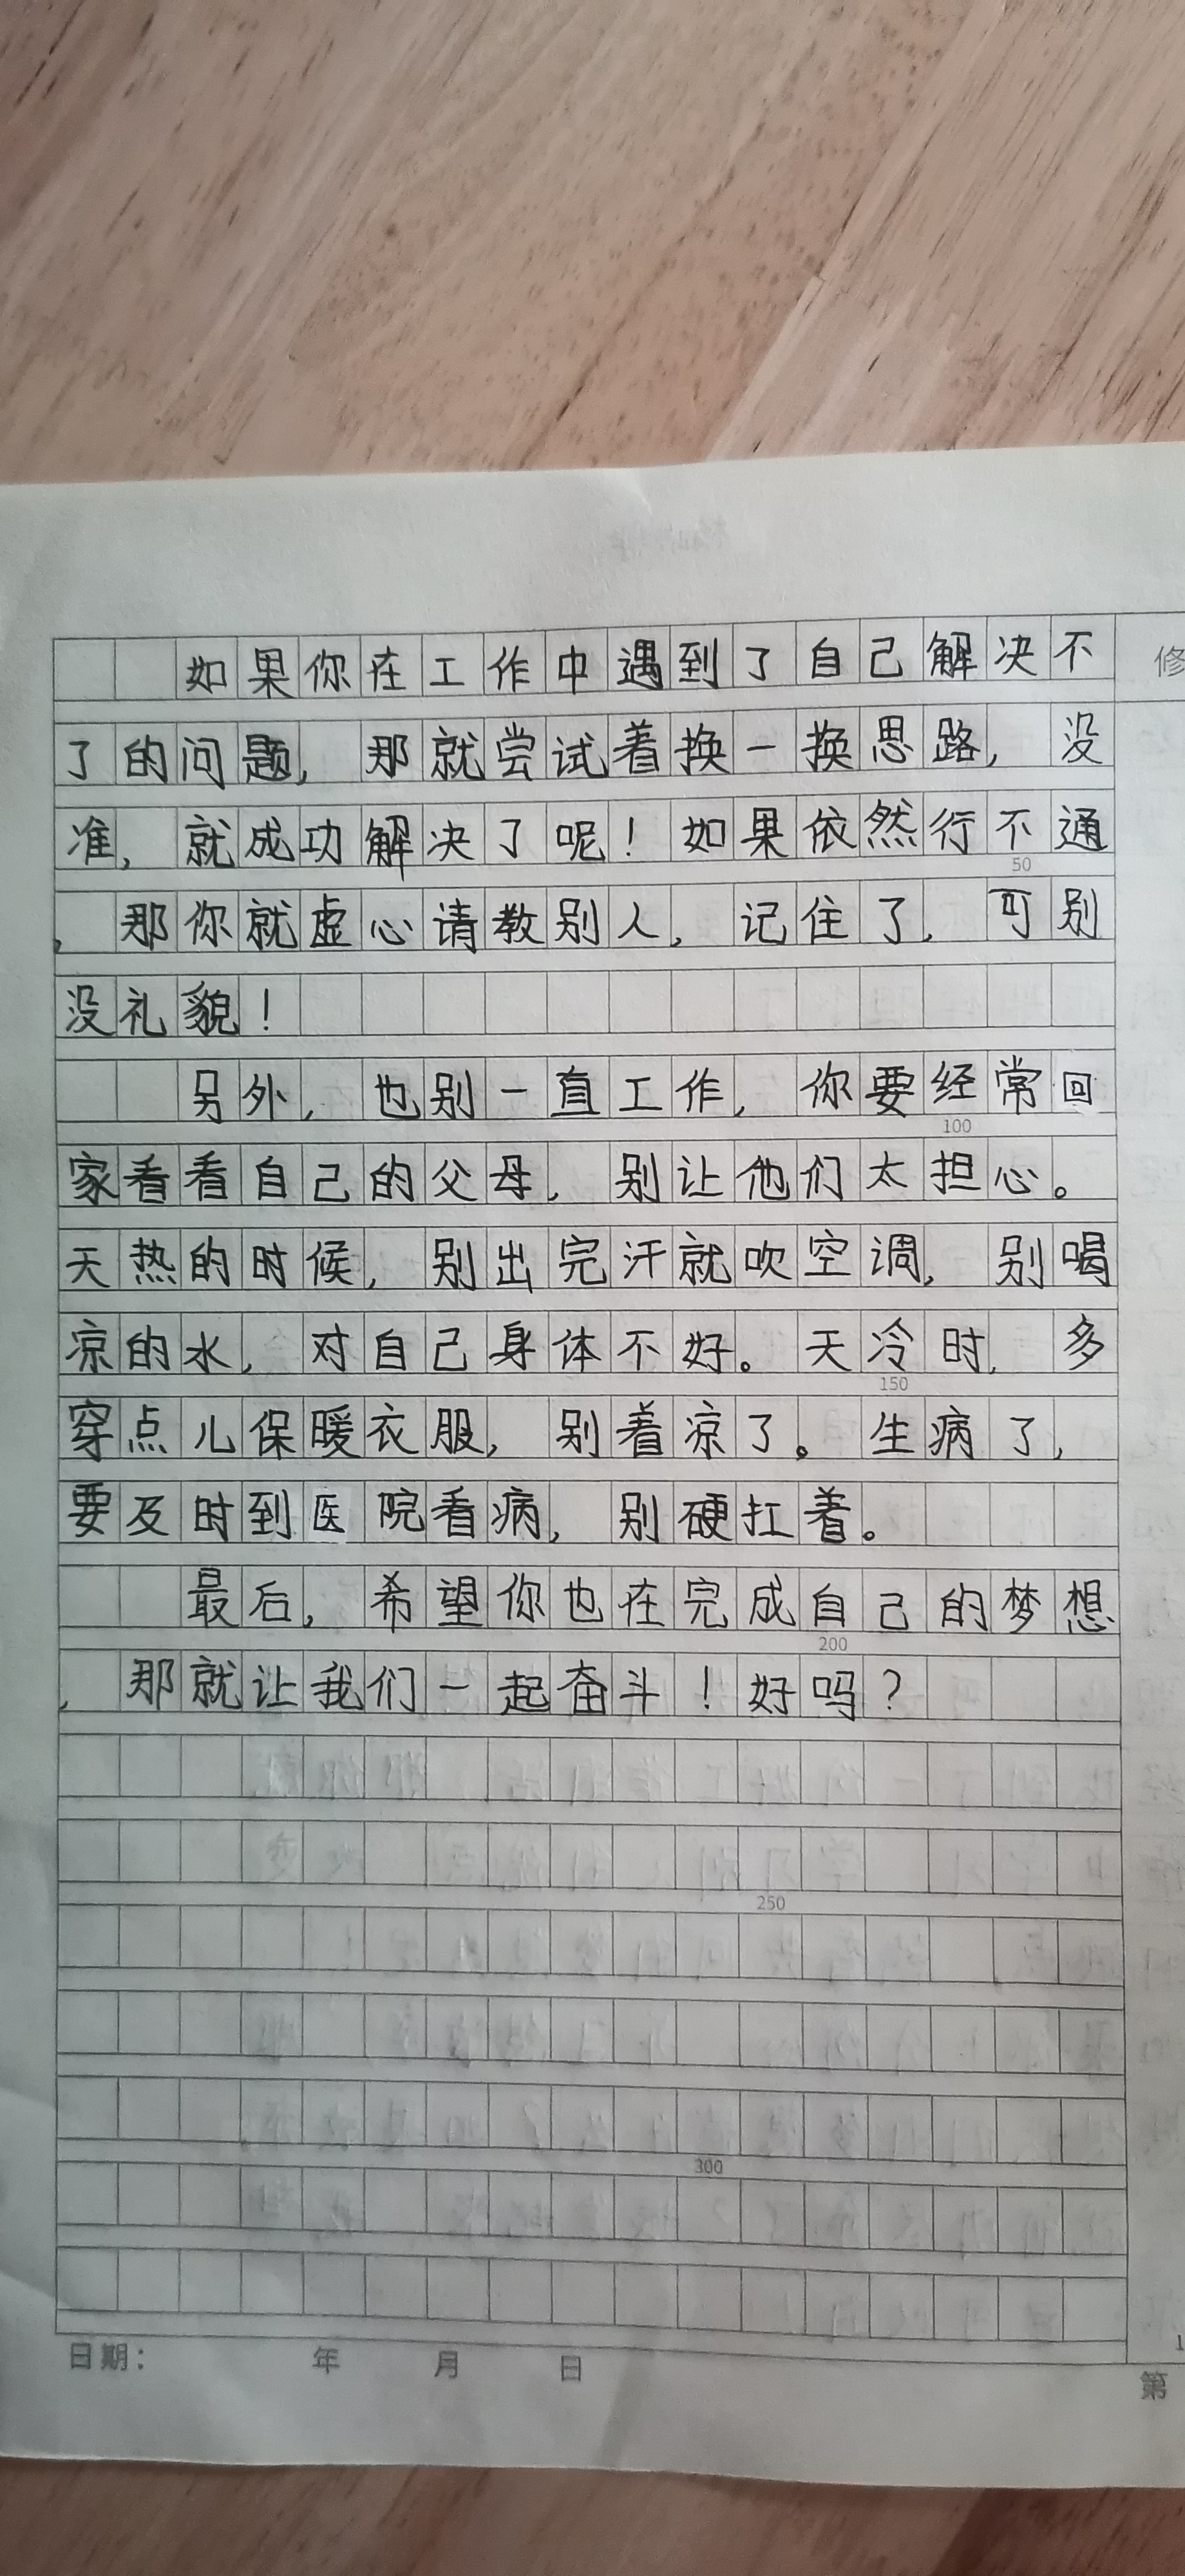 如果你在工作中遇到了自己解决不
修
了的问题，那就尝试着换一换思路，没
准，就成功解决了呢！如果依然行不通
50
，那你就虚心请教别人，记住了，可别
没礼貌！
另外，也别一直工作，你要经常回
100
家看看自己的父母，别让他们太担心。
天热的时候，别出完汗就吹空调，别喝
凉的水，对自己身体不好。天冷时，多
150
穿点儿保暖衣服，别着凉了。生病了，
要及时到医院看病，别硬扛着。
最后，希望你也在完成自己的梦想
200
，那就让我们一起奋斗！好吗？
250
300
日期： 年 月 日
第